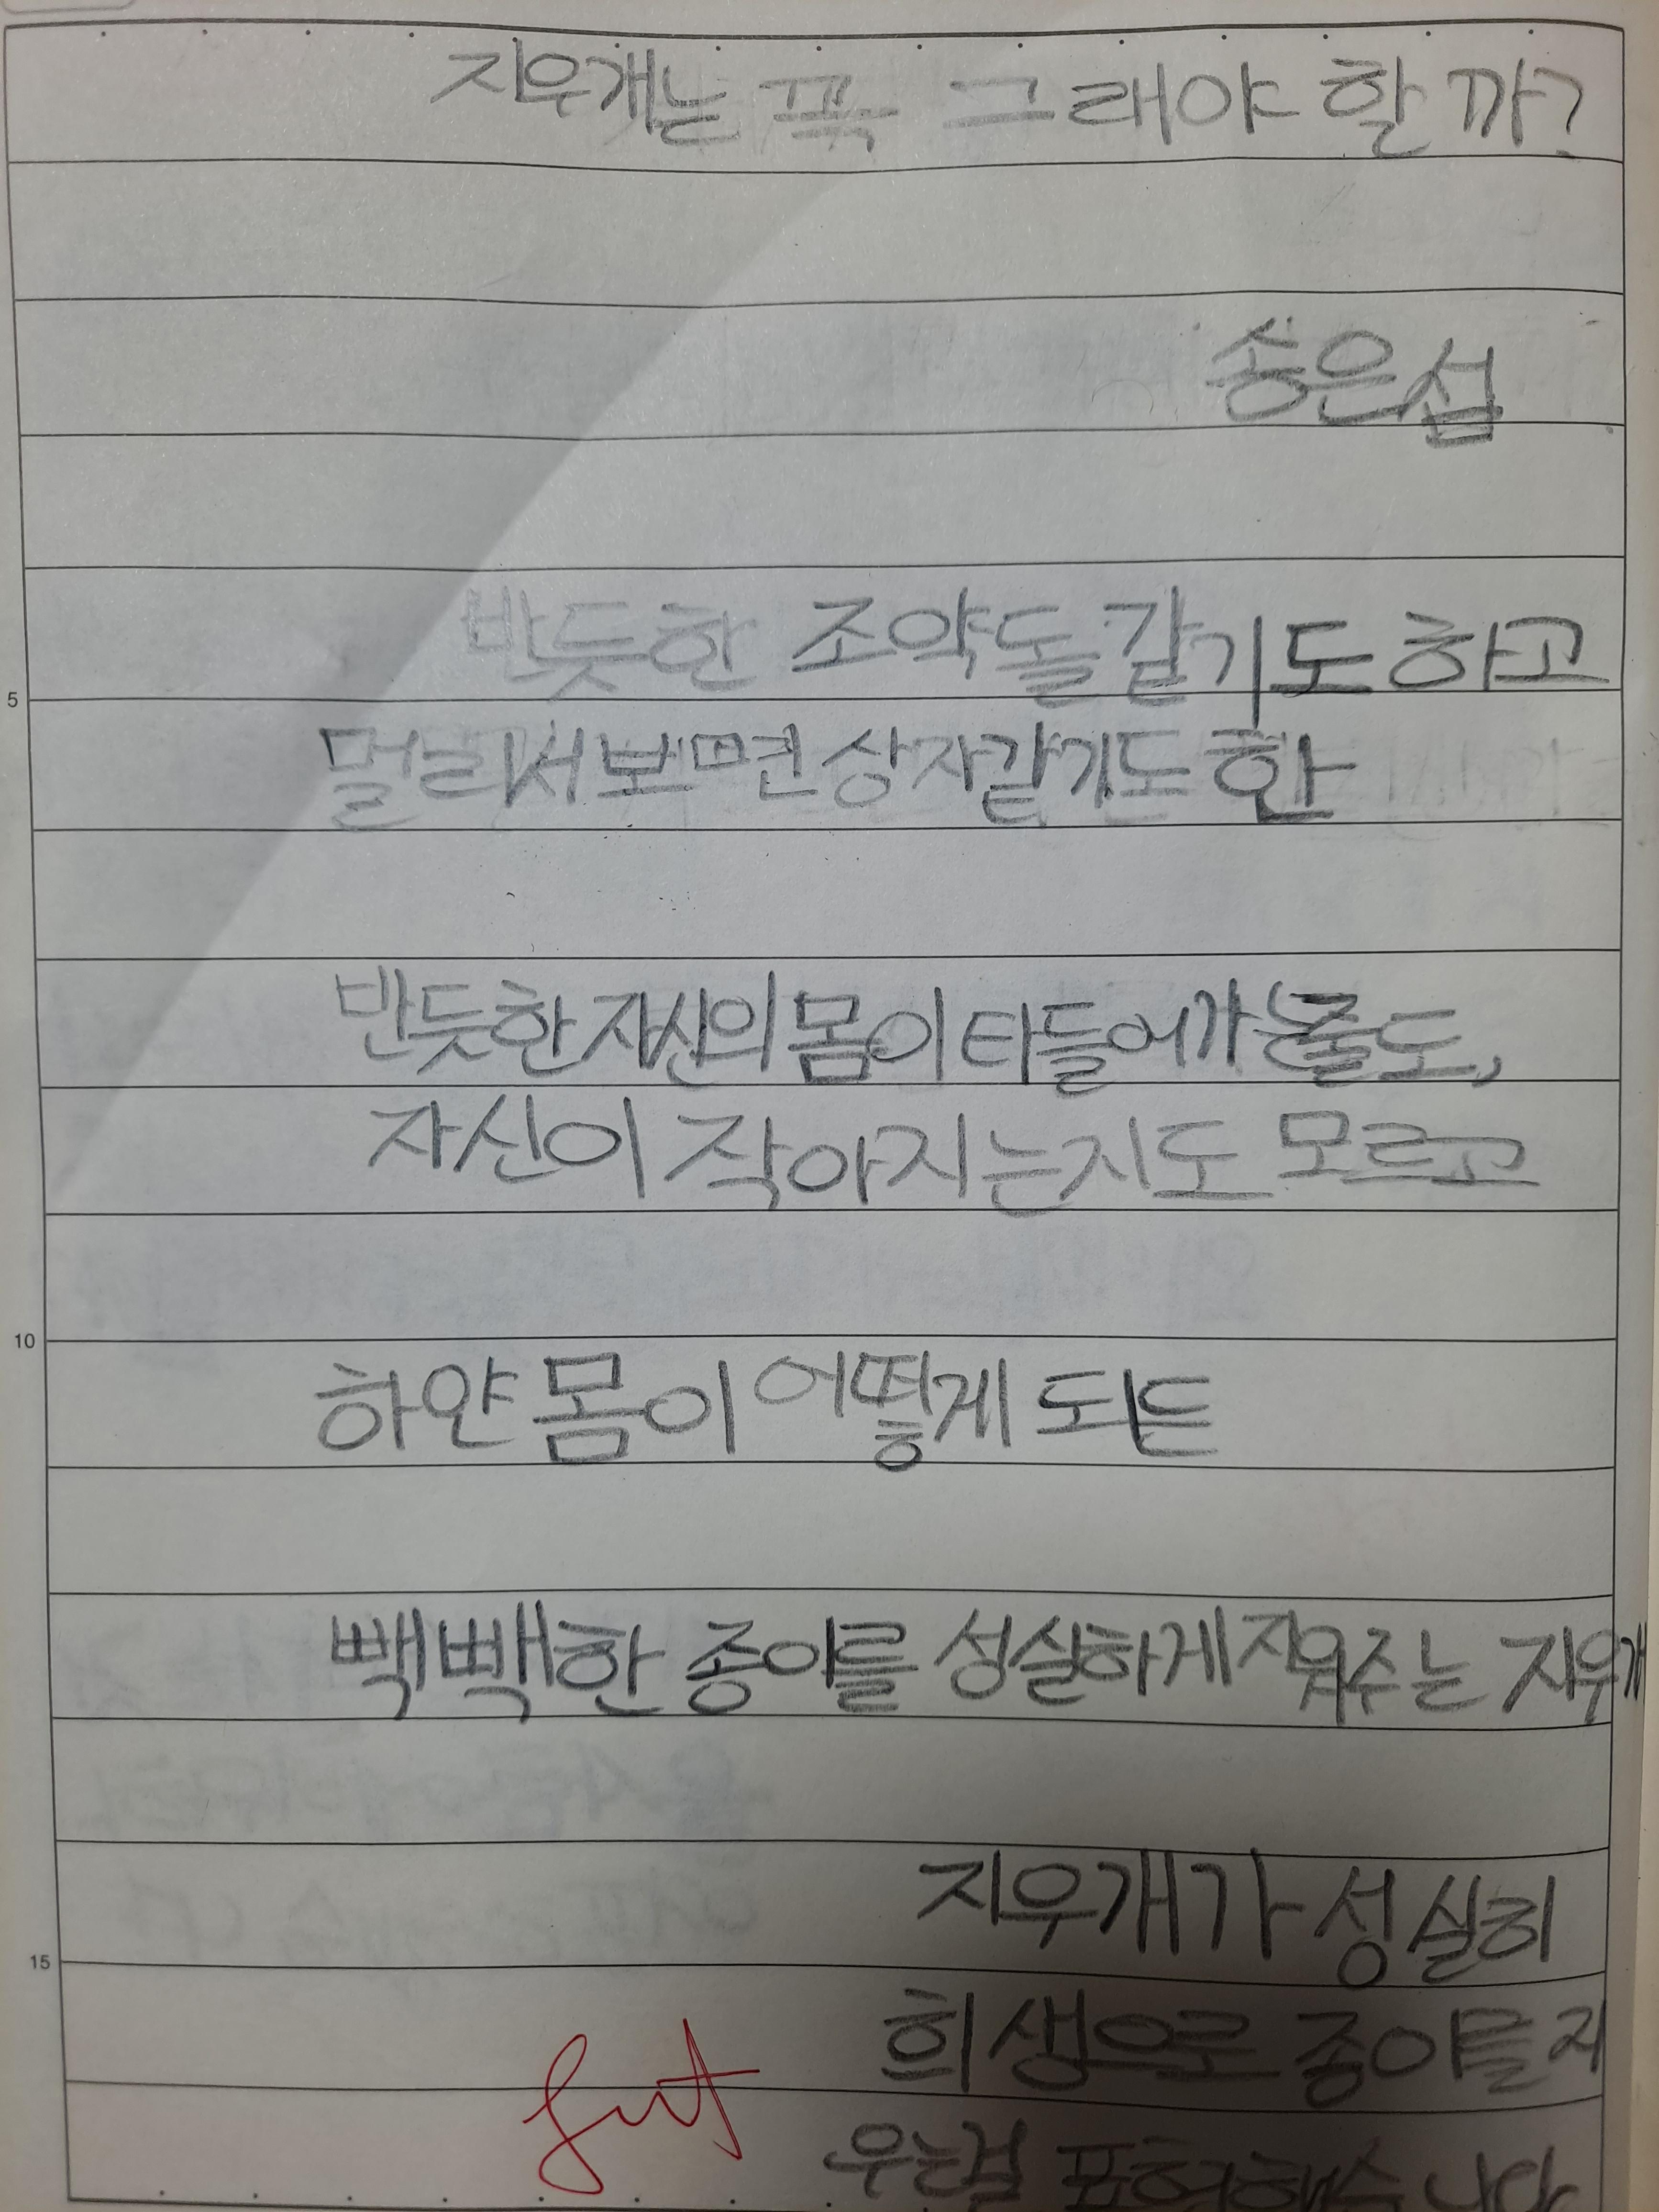 지우개는 꼭 그래야 할까?
송은섭
반듯한 조약돌 같기도 하고
멀리서 보면 상자같기도 한
반듯한 자신의 몸이 타들어가는줄도,
자신이 작아지는지도 모르고
하얀 몸이 어떻게 되든
5
10
빽빽한 종이를 성실하게 지워주는 지우개
15
지우개가 성실히
희생으로 종이를 지
우는걸 표현했습니다